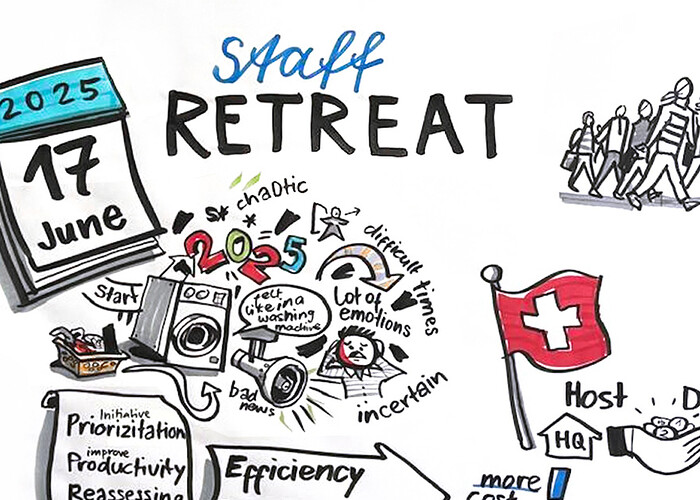 staff
RETREAT
2025
17
June
chaotic
2025
difficult times
Start
felt
like in a
washing
machine
Lot of
emotions
bad
news
incertain
Initiative
Priorizitation
improve
Productivity
Reassessing
Efficiency
Host
HQ
more
cost